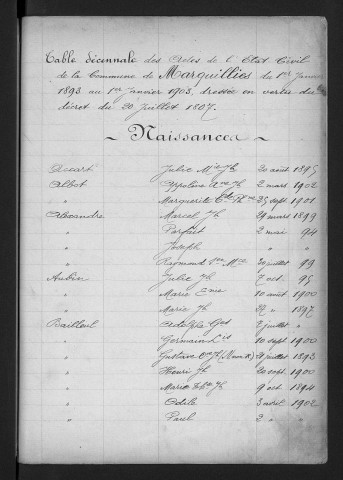 Table décennale des Actes de l'Etat Civil
de la Commune de Marquillies du 1er Janvier
1893 au 1er janvier 1903, dressée en vertu du
décret du 20 juillet 1807.
Naissances
Julie Mie Jh 20 août 1895
Albot Appoline 2 mars 1902
" Marguerite 25 sept. 1901
Alexandre Marcel Jh 29 mars 1899
" Parfait 2 mai 94
" Joseph " "
" Raymond 20 juillet 99
Aubin Julie Jh 7 oct. 95
" Marie 10 août 1900
" Marie Jh " 1897
Bailleul Adolphe 2 juillet "
" Germain Ls 10 sept 1900
" Gustave juillet 1893
" Henri Jh 20 sept. 1900
" Marie Jh 9 oct 1894
" Odile 3 avril 1902
" Paul 2 " "